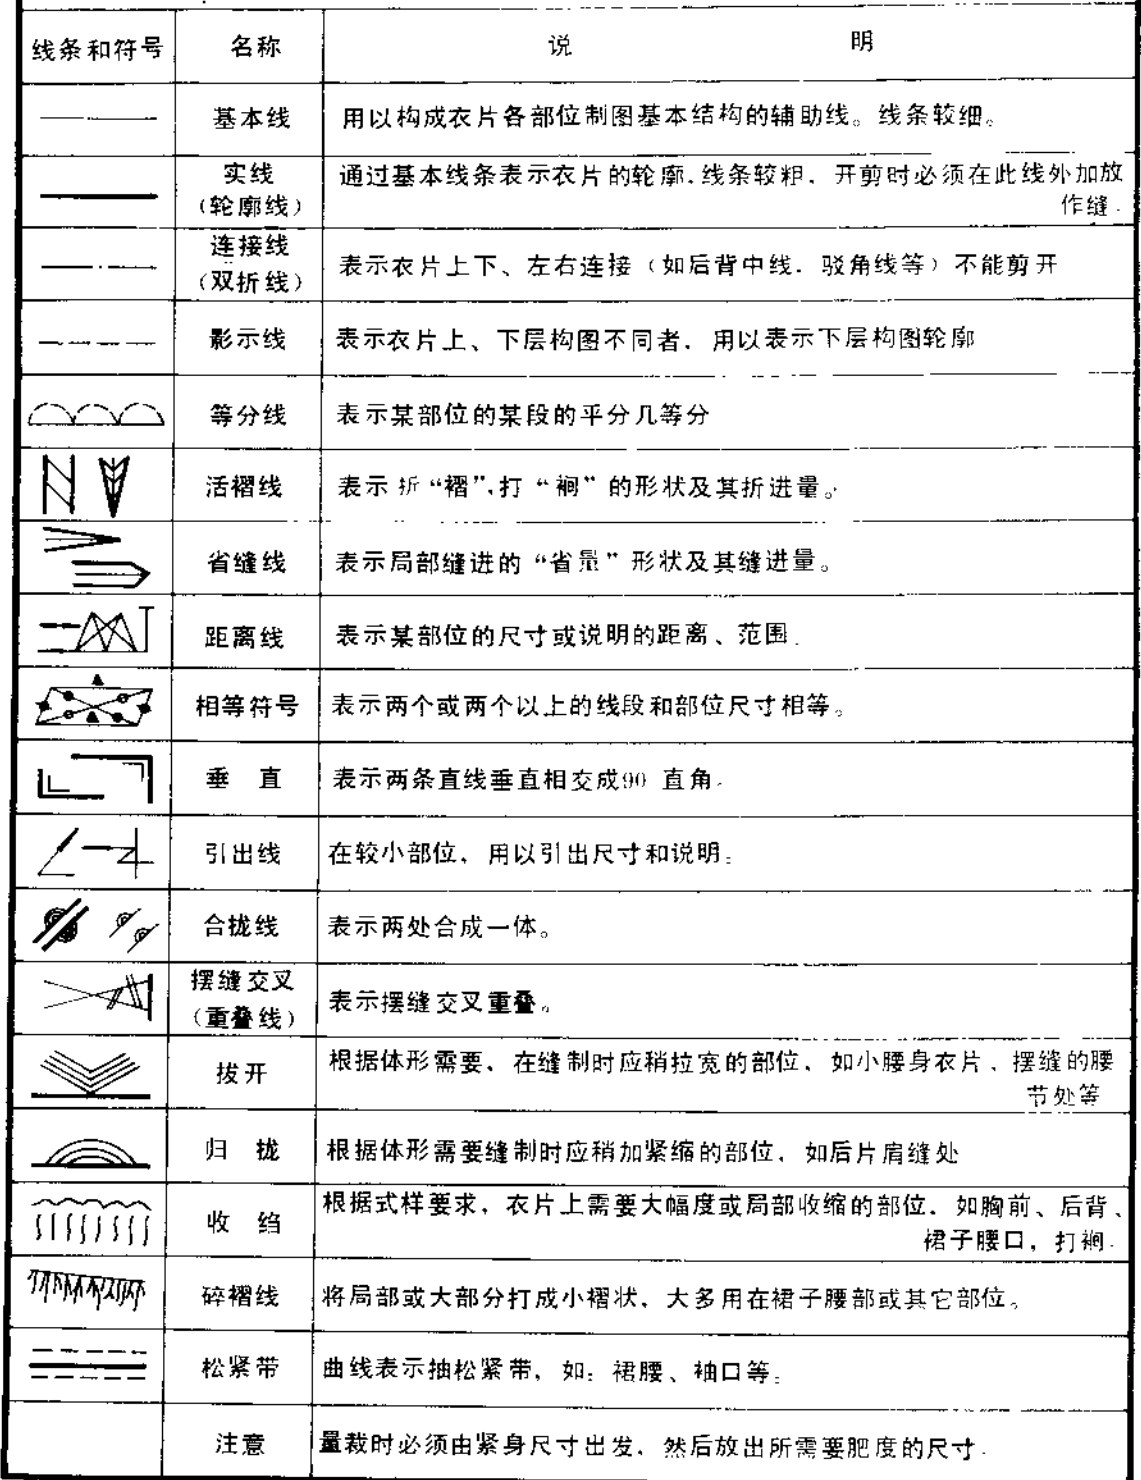 线条和符号 名称 说 明
基本线 用以构成衣片各部位制图基本结构的辅助线。线条较细。
实线
(轮廓线)
通过基本线条表示衣片的轮廓.线条较粗．开剪时必须在此线外加放
作缝.
连接线
(双折线)
表示衣片上下、左右连接（如后背中线．驳角线等）不能剪开
影示线 表示衣片上、下层构图不同者．用以表示下层构图轮廓
等分线 表示某部位的某段的平分几等分
活褶线 表示折“褶”.打“裥”的形状及其折进量。
省缝线 表示局部缝进的“省量”形状及其缝进量。
距离线 表示某部位的尺寸或说明的距离、范围.
相等符号 表示两个或两个以上的线段和部位尺寸相等。
垂 直 表示两条直线垂直相交成90 直角.
引出线 在较小部位．用以引出尺寸和说明.
合拢线 表示两处合成一体。
摆缝交叉
(重叠线)
表示摆缝交叉重叠。
拔开 根据体形需要．在缝制时应稍拉宽的部位．如小腰身衣片、摆缝的腰
节处等
归 拢 根据体形需要缝制时应稍加紧缩的部位．如后片肩缝处
收 绉 根据式样要求．衣片上需要大幅度或局部收缩的部位．如胸前、后背、
裙子腰口，打裥.
碎褶线 将局部或大部分打成小褶状．大多用在裙子腰部或其它部位。
松紧带 曲线表示抽松紧带．如：裙腰、袖口等.
注意 量裁时必须由紧身尺寸出发．然后放出所需要肥度的尺寸.